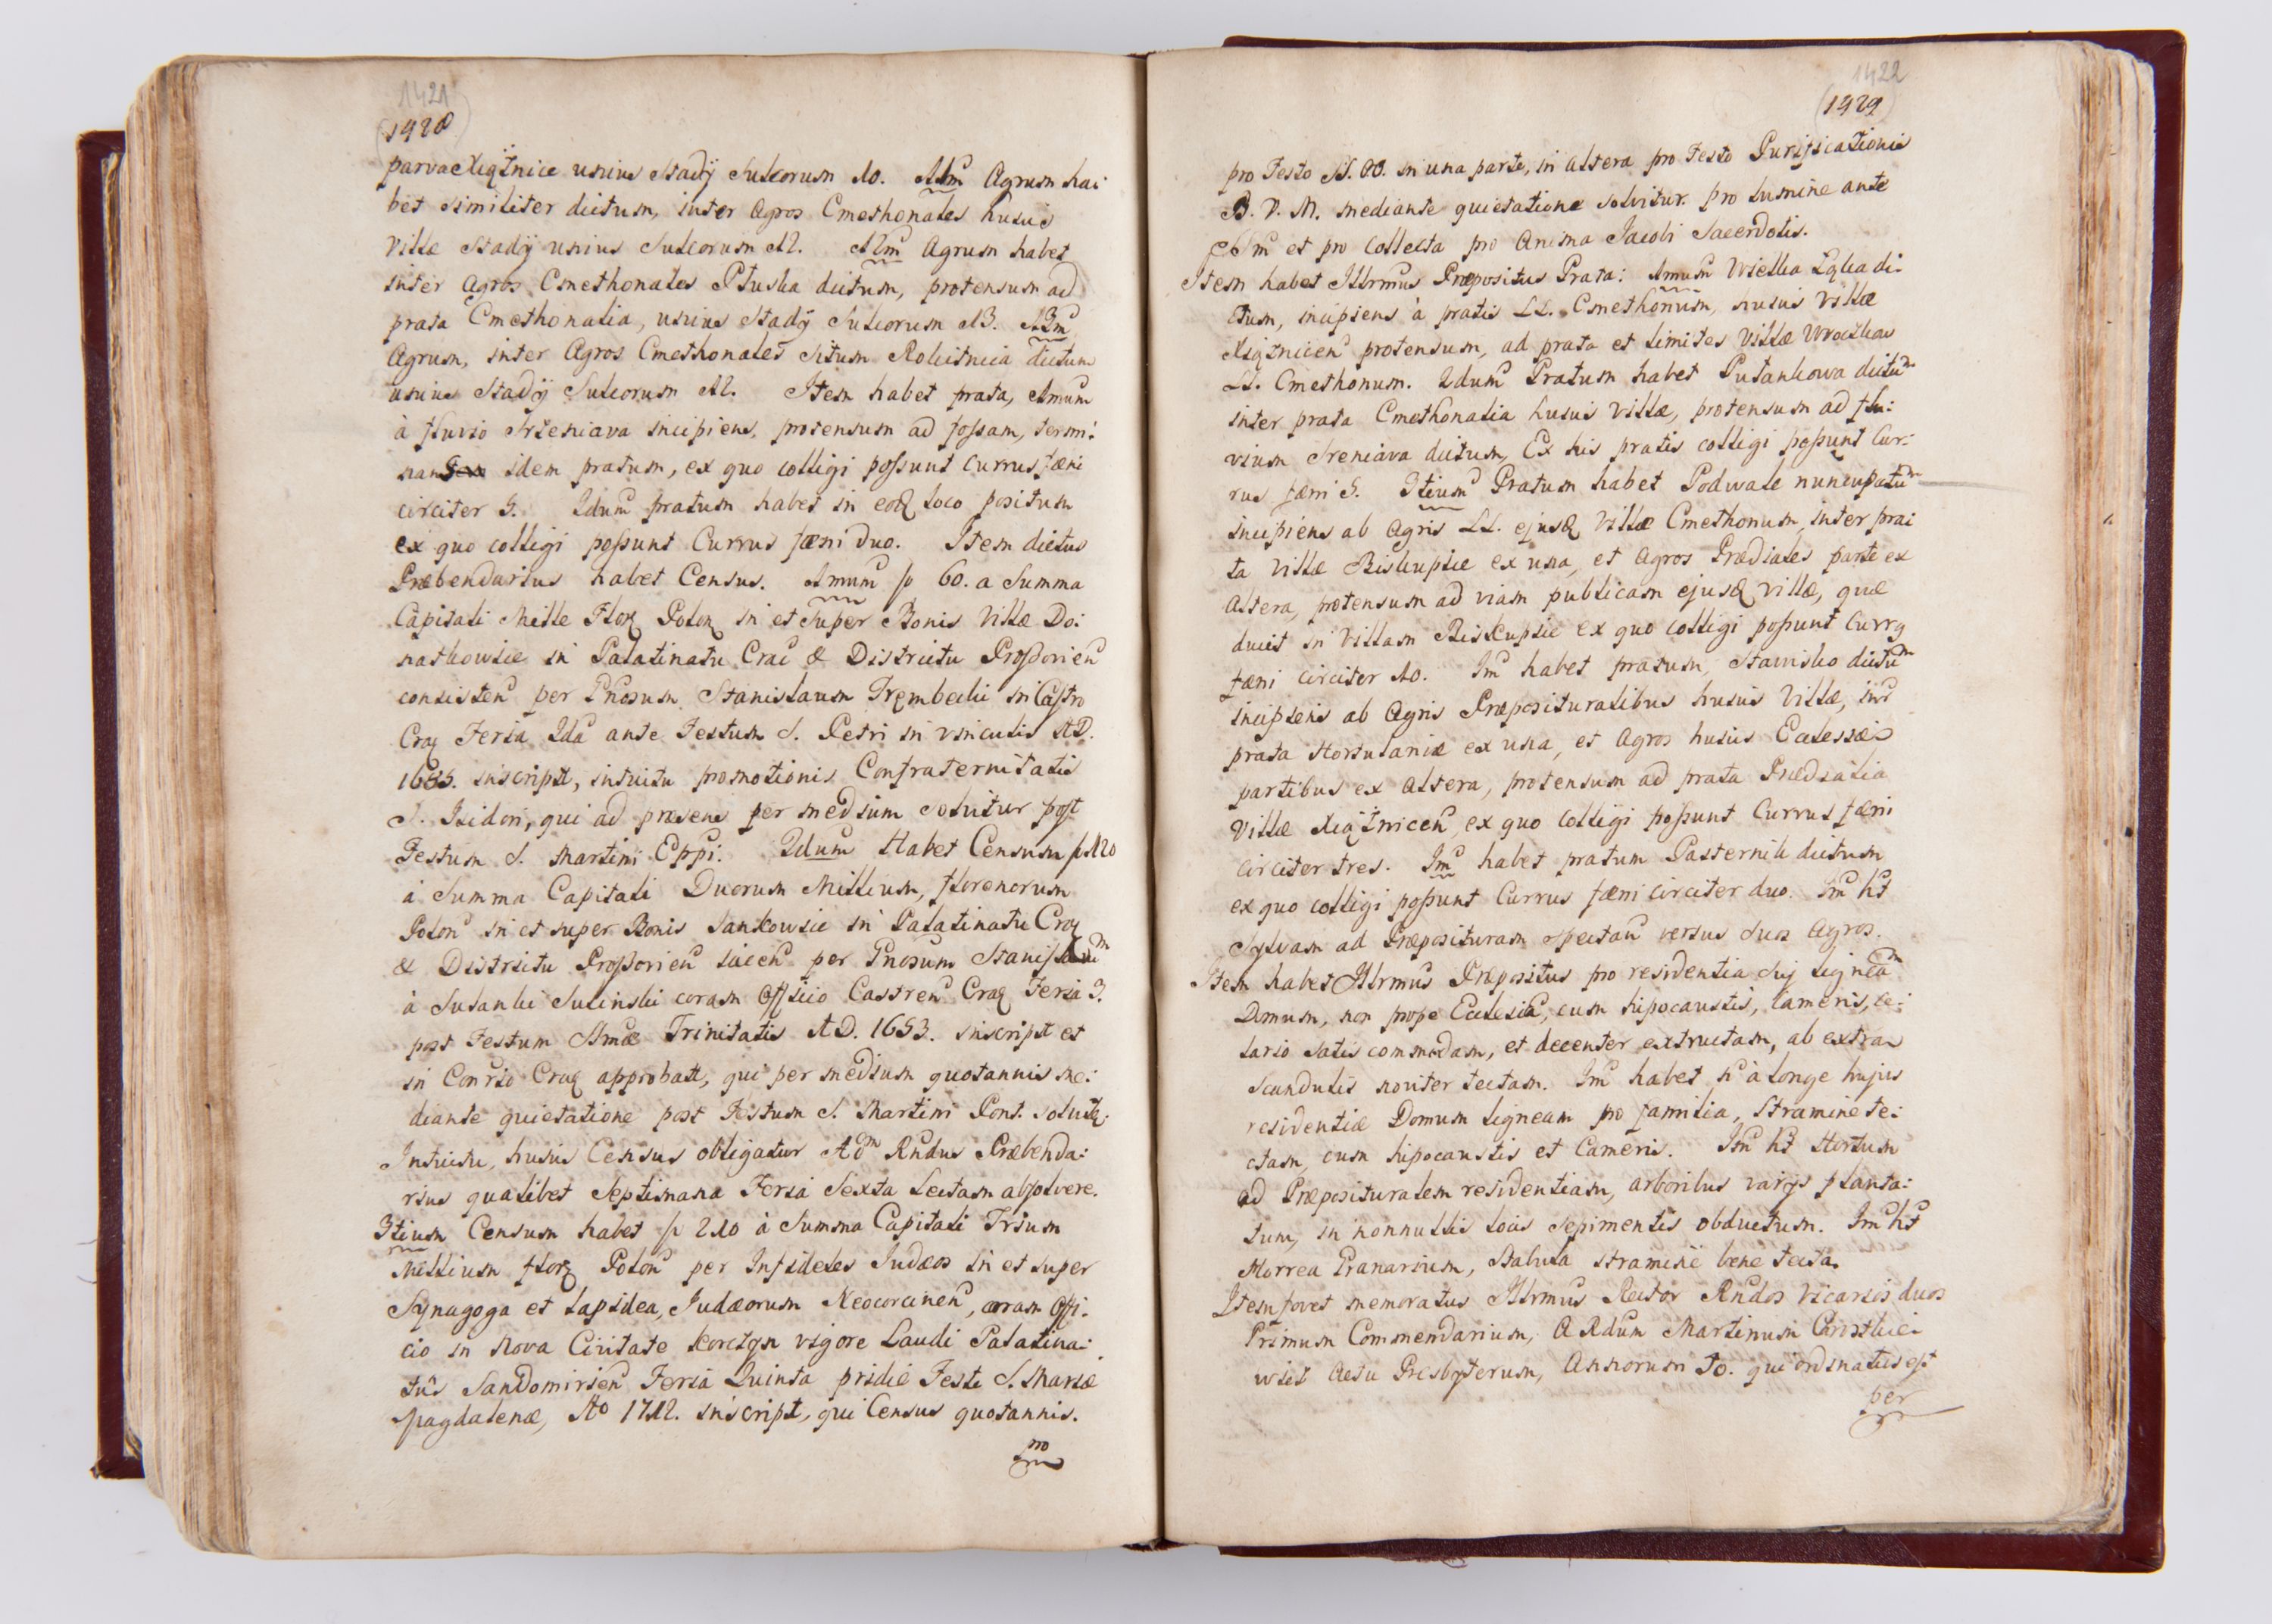 1421
(1420)
parva Xiążnice unius Stadij Sulcorum 10. 11m Agrum ha:
bet similiter dictum, inter Agros Cmethonales hujus
Villæ Stadij unius Sulcorum 12. 12m Agrum habet
inter Agros Cmethonales Pluska dictum, protensum ad
prata Cmethonalia, unius Stadij Sulcorum 13. 13m
Agrum, inter Agros Cmethonales situm Rokitnica dictum
unius Stadij Sulcorum 12. Item habet prata, 1mum
à fluvio Srzeniava incipiens, protensum ad fossam, termi:
nan idem pratum, ex quo colligi possunt currus fæni
circiter 3. 2dum pratum habet in eoq loco positum
ex quo colligi possunt Currus fæni duo. Item dictus
Præbendarius habet Census. 1mum f 60. a Summa
Capitali Mille Floq Poloq in et super Bonis Villæ Do:
natkowice in Palatinatu Crac & Districtu Proszovien
consisten per Gnosum Stanislaum Trembecki in Castro
Crac Feria 2da ante Festum S. Petri in vinculis AD.
1685. inscript, intuitu promotionis Confraternitatis
S. Isidori, qui ad præsens per medium solvitur post
Festum S. Martini Eppi. 2dum Habet Censum f 120
à Summa Capitali Duorum Millium, florenorum
Polon in et super Bonis Jankowice in Palatinatu Crac
& Districtu Proszovien jacen per Gnosum Stanislaum
à Sulanki Sulinski coram Officio Castren Crac Feria 3.
post Festum SSmæ Trinitatis AD. 1653. inscript et
in Conrio Crac approbatt, qui per medium quotannis me:
diante quietatione post Festum S. Martini Pont. solvitr.
Intuitu, hujus Census obligatur Adm Rndus Præbenda:
rius qualibet Septimana Feria Sexta Lectam absolvere.
3tium Censum habet f 210 à Summa Capitali Trium
Millium floq Polon per Infideles Judæos in et super
Synagoga et lapidea, Judæorum Neocorcinen, coram Offi:
cio in Nova Civitate Korczyn vigore Laudi Palatina:
tus Sandomirien Feria Quinta pridie Festi S. Mariæ
Magdalenæ, Ao 1712. inscript, qui Census quotannis.
pro
1422
(1421)
pro Festo SS. OO. in una parte, in altera pro Festo Purificationis
B. V. M. mediante quietatione solvitur pro lumine ante
SSm et pro Collecta pro Anima Jacobi Sacerdotis.
Item habet Illrmus Præpositus Prata: 1mum Wielka Łąka di:
ctum, incipiens à pratis LL. Cmethonum, hujus Villæ
Xiążnicen protensum, ad prata et limites Villæ Wrocîkow
LL. Cmethonum. 2dum Pratum habet Putankowa dictum
inter prata Cmethonalia hujus Villæ, protensum ad flu:
vium Sreniava dictum, Ex his pratis colligi possunt Cur:
rus fæni 5. 3tium Pratum habet Podwale nuncupatum
incipiens ab Agris LL. ejusq Villæ Cmethonum, inter pra:
ta Villæ Biskupice ex una, et Agros Prædiales parte ex
altera, protensum ad viam publicam ejusq villæ, quæ
ducit in Villam Biskupice ex quo colligi possunt Currq
fæni circiter 10. Im habet pratum, Stawisko dictum
incipiens ab Agris Præposituralibus hujus Villæ, intr
prata Hortulaniæ ex una, et Agros hujus Ecclesiæ
partibus ex altera, protensum ad prata Prædialia
Villæ Xiążnicen, ex quo colligi possunt Currus fæni
circiter tres. Im habet pratum Pasternik dictum
ex quo colligi possunt Currus fæni circiter duo. Im ht
Sylvam ad Præposituram spectan versus suos Agros.
Item habet Illrmus Præpositus pro residentia sui ligneam
Domum, non prope Ecclesia, cum hipocaustis, cameris, ce:
lario satis commodam, et decenter extructam, ab extra
Scandulis noviter tectam. Im habet n à longe hujus
residentiæ Domum ligneam pro familia, Stramine te:
ctam, cum hipocaustis et Cameris. Im ht Hortum
ad Præposituralem residentiam, arboribus varijs planta:
tum, in nonnullis locis sepimentis obductum. Im ht
Horrea Granarium, Stabula stramine bene tecta.
Item fovet memoratus Illrmus Rector Rndos Vicarios duos
Primum Commendarium, A Rdum Martinum
wicz Actu Presbyterum, Annorum 50. qui ordinatus est
per